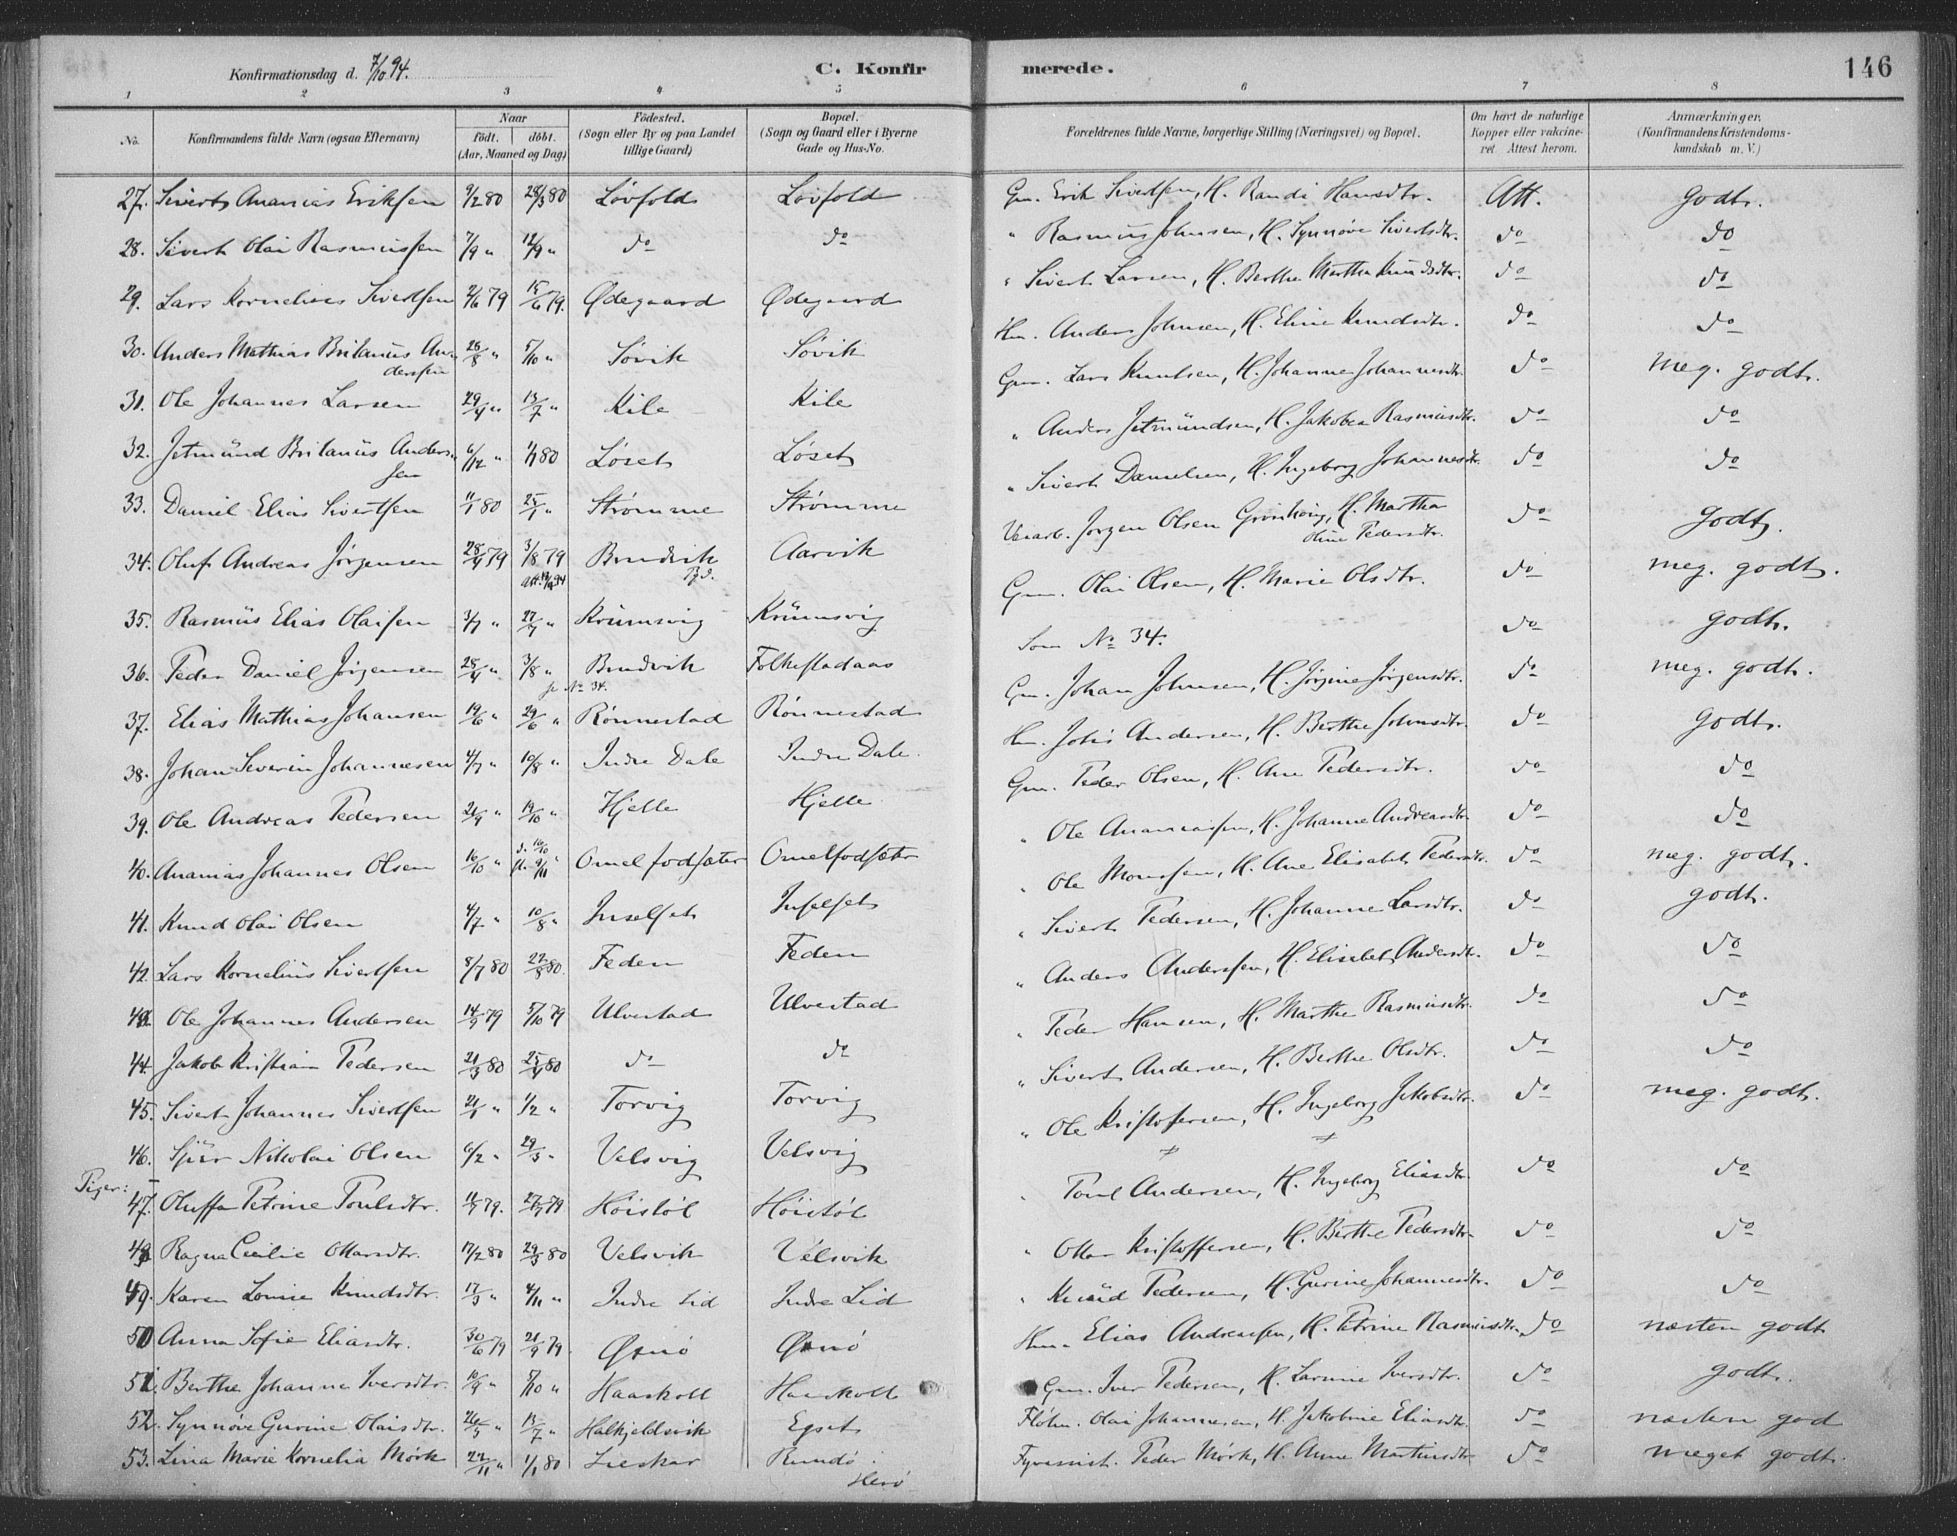 Konfirmationsdag d. 7/10 94.
C. Konfirmerede.
146
1 2 3 4 5 6 7 8
No. Konfirmandens fulde Navn (ogsaa Efternavn) Naar født. døbt. (Aar, Maaned og Dag) Fødested. (Sogn eller By og paa Landet tillige Gaard) Bopæl. (Sogn og Gaard eller i Byerne Gade og Hus-No. Forældrenes fulde Navne, borgerlige Stilling (Næringsvei) og Bopæl. Om havt de naturlige Kopper eller vakcineret. Attest herom. Anmærkninger. (Konfirmandens Kristendomskundskab m. V.)
27. Sivert Ananias Eriksen 9/2 80 28/3 80 Løvfold Løvfold Gm. Erik Sivertsen, H. Randi Hansdtr. Att. godt.
28. Sivert Olai Rasmussen 7/9 " 12/9 " do do " Rasmus Johnsen, H. Synnøve Sivertsdtr. do do
29. Lars Kornelius Sivertsen 2/6 79 15/6 79. Ødegaard Ødegaard " Sivert Larsen, H. Berthe Martha Knudsdtr. do do
30. Anders Mathias Britanus Andersen 26/8 " 5/10 " Søvik Søvik Hm. Anders Johnsen, H. Eline Knudsdtr. do do
31. Ole Johannes Larsen 29/4 " 13/7 " Kile Kile Gm. Lars Knutsen, H. Johanne Johannesdtr. do meg. godt.
32. Jetmund Britanus Andersen 6/12 " 1/1 80 Løset Løset " Anders Jetmundsen, H. Jakobea Rasmusdtr. do do
33. Daniel Elias Sivertsen 11/1 80 25/1 " Strømme Strømme " Sivert Danielsen, H. Ingeborg Johannesdtr. do do
34. Oluf Andreas Jørgensen 28/4 79 3/8 79 Brudvik Aarvik Jørgen Olsen H. Martha Oline Pedersdtr. do godt.
35. Rasmus Elias Olaisen 3/7 " 27/7 " Krumsvig Krumsvig Gm. Olai Olsen, H. Marie Olsdtr. do meg. godt.
36. Peder Daniel Jørgensen 28/4 " 3/8 " Brudvik Folkestadaas Som No 34. do godt.
se No 34.
37. Elias Mathias Johansen 19/6 " 29/6 " Rønnestad Rønnestad Gm. Johan Johnsen, H. Jørgine Jørgensdtr. do meg. godt.
38. Johan Severin Johannesen 4/7 " 10/8 " Indre Dale Indre Dale Hm. Johs Andersen, H. Berthe Johnsdtr. do godt.
39. Ole Andreas Pedersen 21/9 " 19/10 " Hjelle Hjelle Gm. Peder Olsen, H. Ane Pedersdtr. do do
40. Ananias Johannes Olsen 16/10 " d. 16/10 fr. 9/11 " Omelfodsæter Omelfodsæter " Ole Ananiassen, H. Johanne Andreasdtr. do do
41. Knud Olai Olsen 4/7 " 10/8 " Inselset Inselset " Ole Monssen, H. Ane Elisabet Pedersdtr. do meg. godt.
42. Lars Kornelius Sivertsen 8/7 80 22/8 80. Feden Feden " Sivert Pedersen, H. Johanne Larsdtr. do godt.
43. Ole Johannes Andersen 14/9 79 5/10 79 Ulvestad Ulvestad " Anders Anderssen, H. Elisabet Andersdtr. do do
44. Jakob Kristian Pedersen 21/3 80 25/4 80 do do " Peder Hansen, H. Marthe Rasmusdtr. do do
45. Sivert Johannes Sivertsen 21/1 " 1/2 " Torvig Torvig " Sivert Andersen, H. Berthe Olsdtr. do do
46. Nikolai Olsen 6/2 " 29/3 " Velsvig Velsvig " Ole Kristofersen, H. Ingeborg Jakobsdtr. do meg. godt.
Piger:
47. Oluffa Petrine Poulsdtr. 11/7 79. 27/7 79 Høistøl Høistøl " Poul Andersen, H. Ingeborg Eliasdtr. do do
48. Ragna Cecilie Ottarsdtr. 17/2 80 29/3 80 Velsvik Velsvik " Ottar Kristoffersen, H. Berthe Pedersdtr. do do
49. Karen Lovise Knudsdtr. 17/3 " 4/11 " Indre Lid Indre Lid " Knud Pedersen, H. Gurine Johannesdtr. do do
50 Anna Sofie Eliasdtr. 30/6 79 21/9 79. Ørnø Ørnø Hm. Elias Andreassen, H. Petrine Rasmusdtr. do næsten godt
51. Berthe Johanne Iversdtr. 10/9 " 5/10 " Haaskoll Haaskoll Gm. Iver Pedersen, H. Larsine Iversdtr. do godt.
52. Synnøve Gurine Olaisdtr. 26/5 " 13/7 " Halkjeldsvik Egset Olai Johannesen, H. Jakobine Eliasdtr. do næsten god
53. Lina Marie Kornelia Mørk 22/11 " 1/1 80 Lieskar Rundø. Herø Fyrassist. Peder Mørk, H. Anne Martinsdtr. do meget godt.